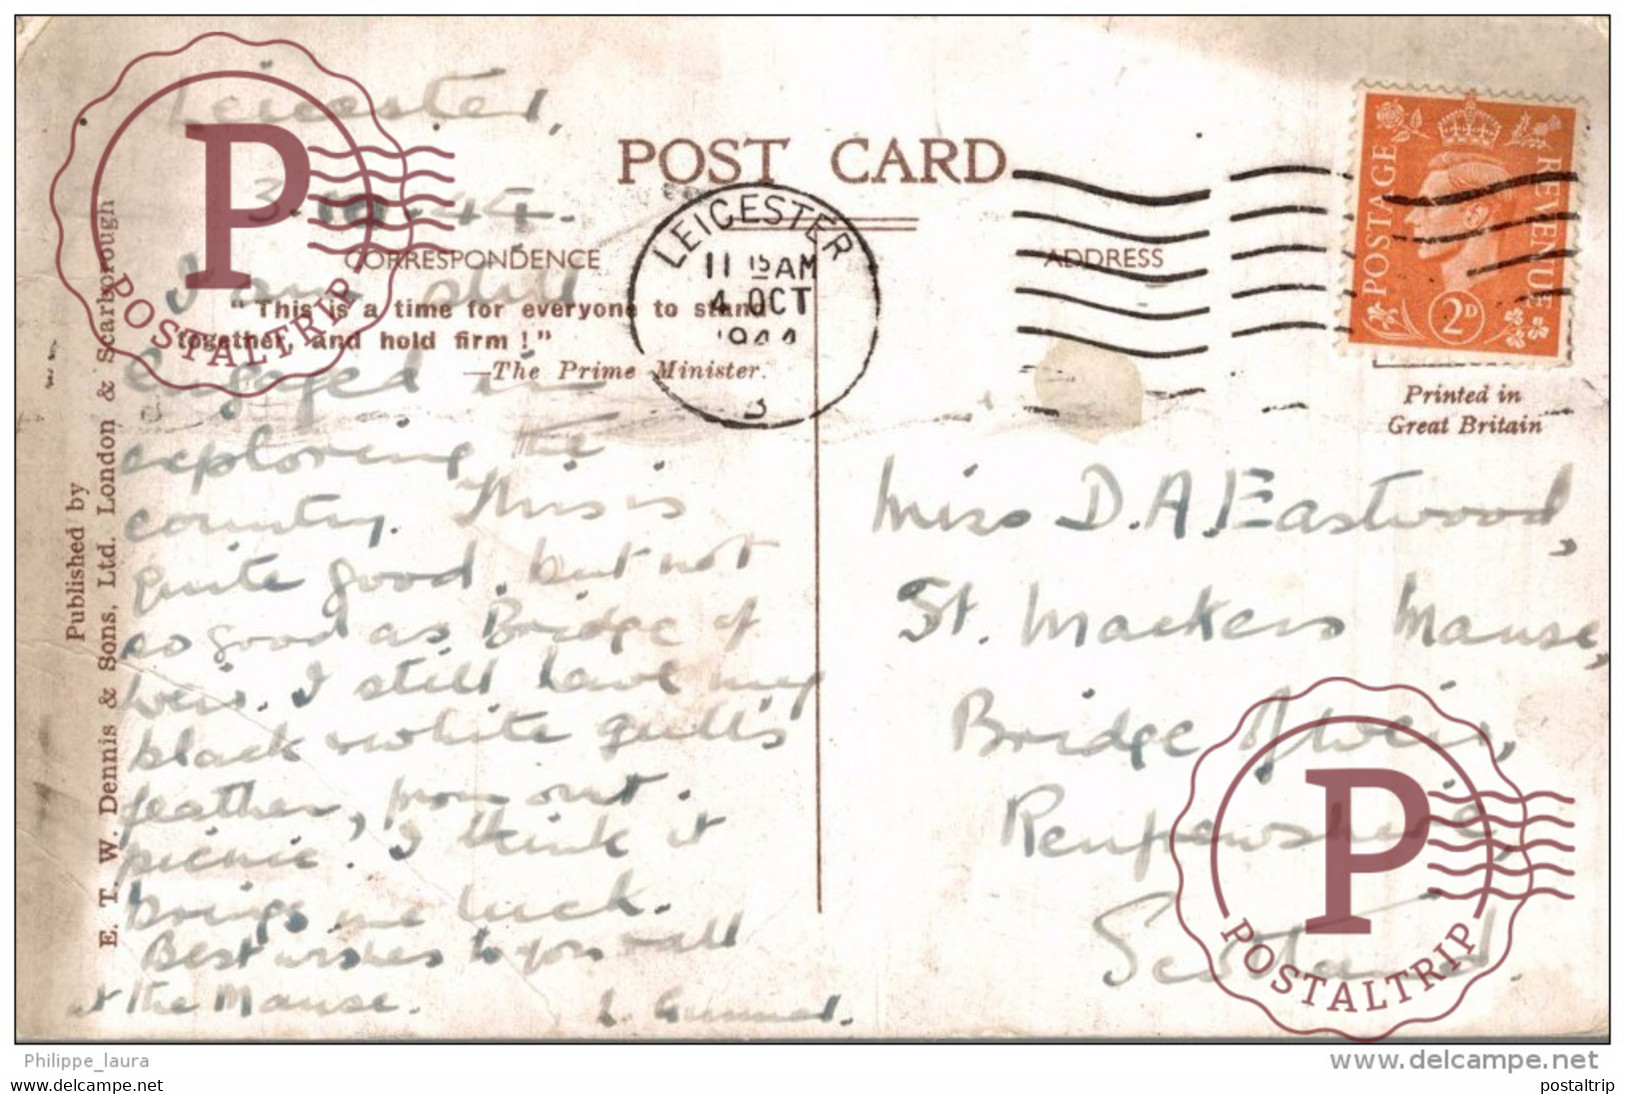 POST CARD
CORRESPONDENCE
ADDRESS
"This is a time for everyone to stand
together, and hold firm !"
—The Prime Minister.
LEICESTER
11 15 AM
4 OCT
1944
POSTAGE
REVENUE
2D
Printed in
Great Britain
Published by
E. T. W. Dennis & Sons, Ltd. London & Scarborough
Leicester,
3.10.44.
I am still
engaged in
exploring the
country. This is
quite good, but not
so good as Bridge of
Weir. I still have my
black & white gull's
feather, from our
picnic. I think it
brings me luck.
Best wishes to you & all
at the Manse.
Miss D. A. Eastwood,
St. Mackers Manse,
Bridge of Weir,
Renfrewshire,
Scotland.
P
POSTALTRIP
P
POSTALTRIP
Philippe_laura
www.delcampe.net
www.delcampe.net
postaltrip